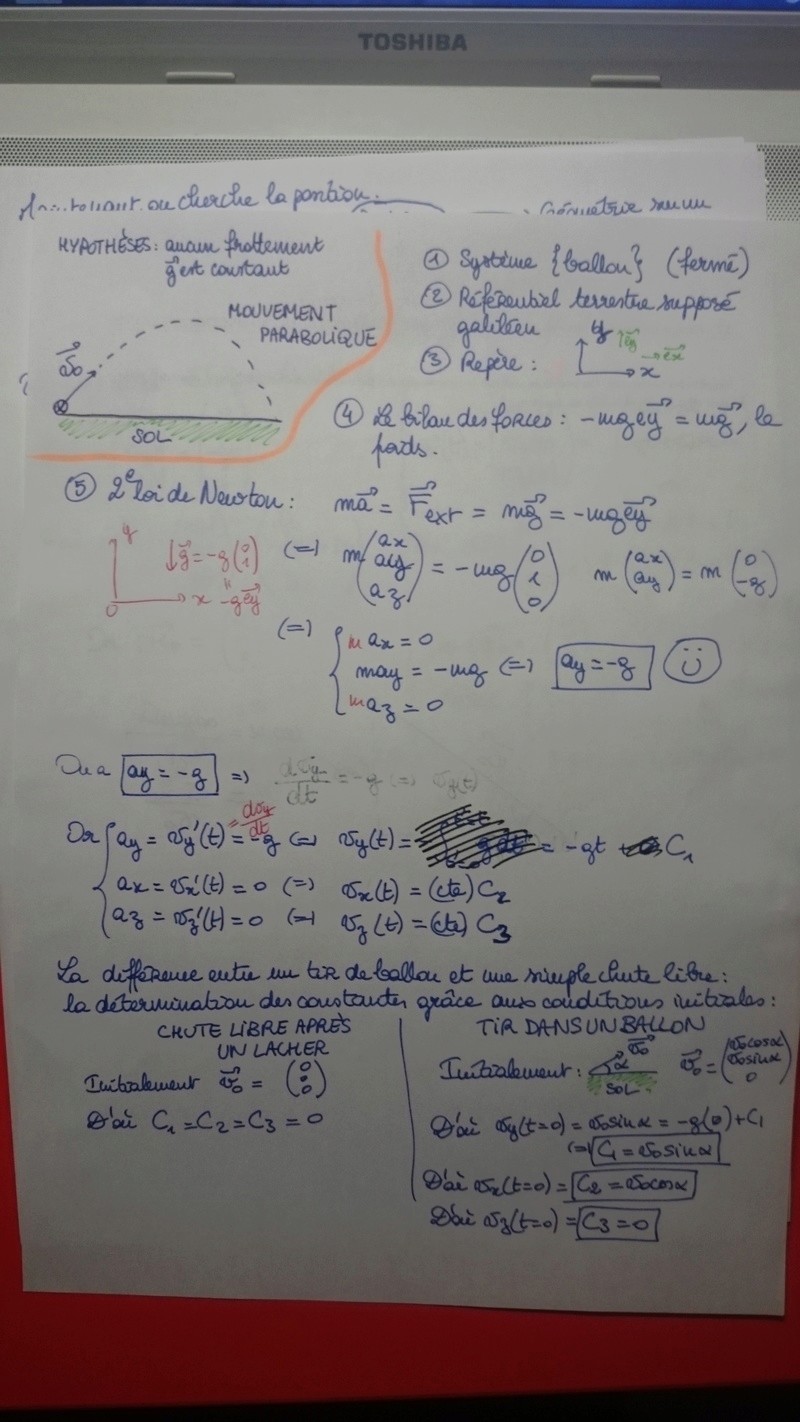 TOSHIBA
on cherche la position :
HYPOTHÈSES : aucun frottement
g⃗ est constant
MOUVEMENT
PARABOLIQUE
v⃗o
SOL
① Système {ballon} (fermé)
② Référentiel terrestre supposé
galiléen
③ Repère :
y e⃗y
e⃗x
x
④ Le bilan des forces : -mg e⃗y = mg⃗, le
poids.
⑤ 2e loi de Newton : ma⃗ = F⃗ext = mg⃗ = -mg e⃗y
y ↓g⃗ = -g (0 1)
0 x -g e⃗y
(=) m (ax ay az) = -mg (0 1 0) m (ax ay) = m (0 -g)
(=) { m ax = 0
may = -mg (=) ay = -g
m az = 0
On a ay = -g => dvy/dt = -g (=) vy(t)
Or { ay = vy'(t) = dvy/dt = -g (=) vy(t) = = -gt + C1
ax = vx'(t) = 0 (=) vx(t) = (cte) C2
az = vz'(t) = 0 (=) vz(t) = (cte) C3
La différence entre un tir de ballon et une simple chute libre :
la détermination des constantes grâce aux conditions initiales :
CHUTE LIBRE APRÈS
UN LACHER
Initialement v⃗o = (0 0 0)
D'où C1 = C2 = C3 = 0
TIR DANS UN BALLON
Initialement : α v⃗o SOL v⃗o = (vocosα vosinα 0)
D'où vy(t=0) = vosinα = -g(0) + C1
(=) C1 = vosinα
D'où vx(t=0) = C2 = vocosα
D'où vz(t=0) = C3 = 0